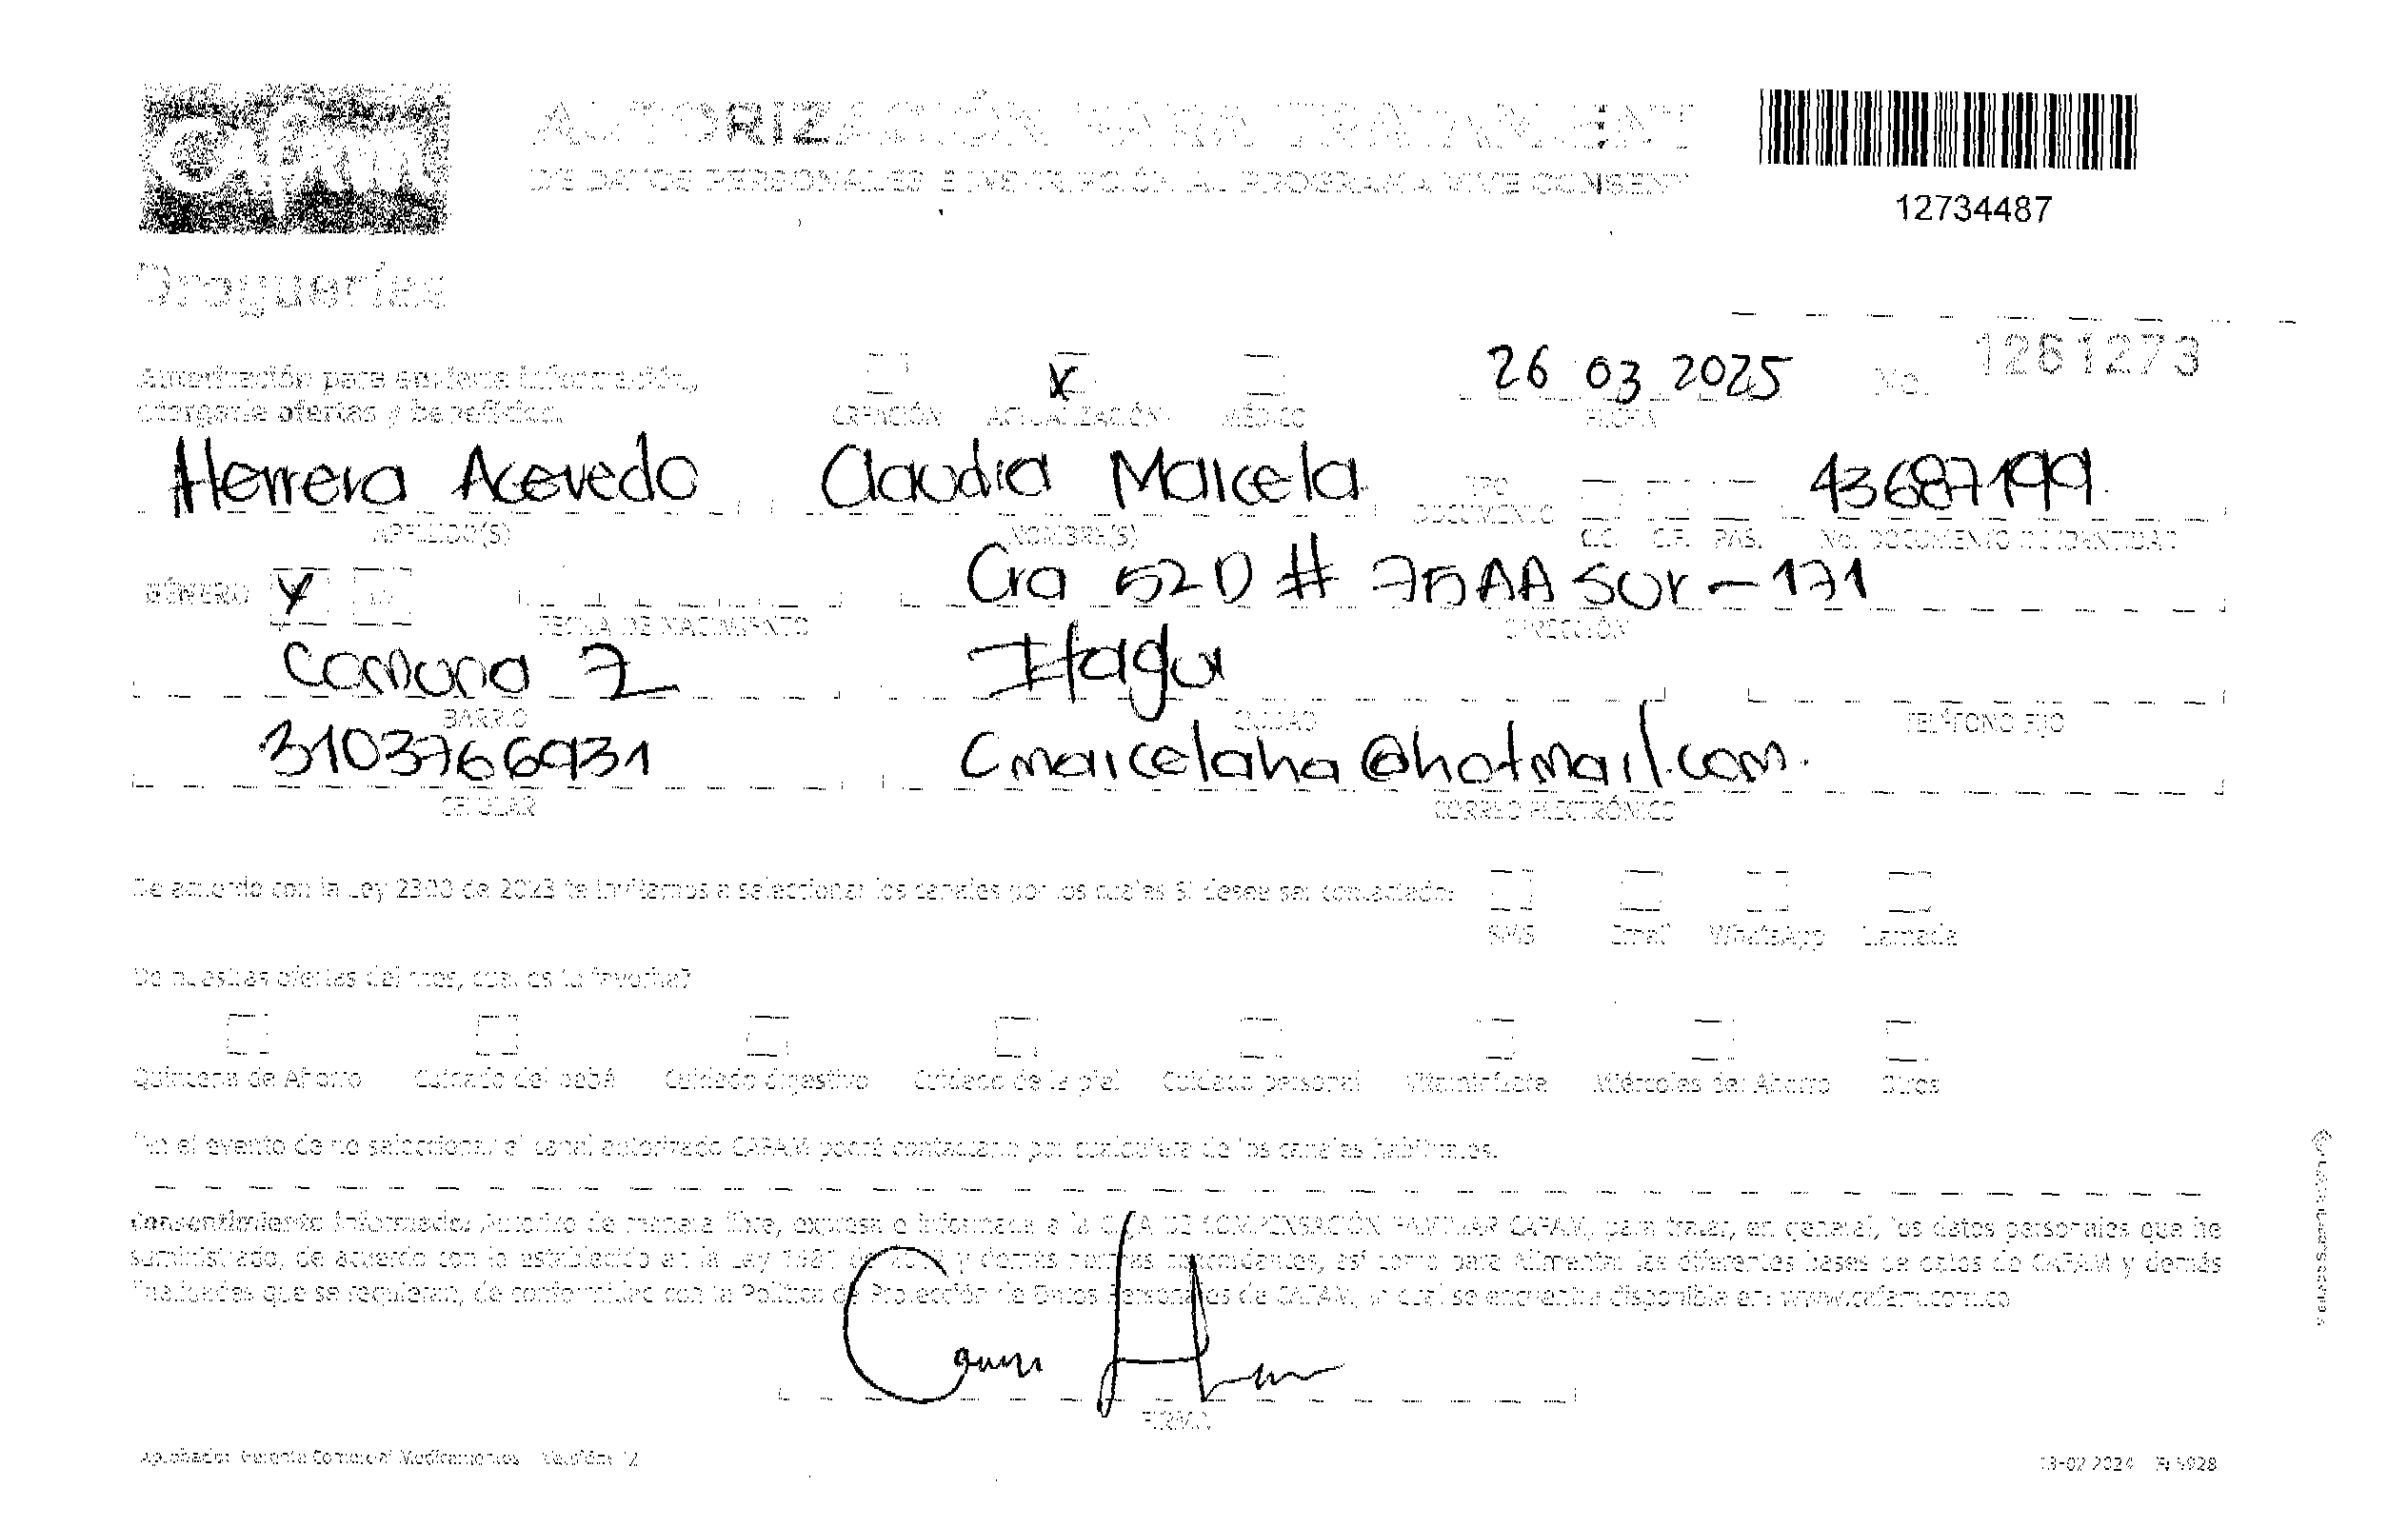 Cafam
AUTORIZACIÓN PARA TRATAMIENT
DE DATOS PERSONALES E INSCRIPCIÓN AL PROGRAMA VIVE CONSENT
12734487
Droguerías
Autorización para enviarle información,
otorgarle ofertas y beneficios.
CREACIÓN ACTUALIZACIÓN MÉDICO
X
26 03 2025
FECHA
No. 1261273
Herrera Acevedo Claudia Marcela 43687199
APELLIDO(S) NOMBRE(S) TIPO DOCUMENTO C.C. C.E. PAS. No. DOCUMENTO DE IDENTIDAD
GÉNERO X
FECHA DE NACIMIENTO
Cra 52D # 75AA Sur - 171
DIRECCIÓN
Comuna 2 Itagui
BARRIO CIUDAD TELÉFONO FIJO
3103766931 Cmarcelaha@hotmail.com.
CELULAR CORREO ELECTRÓNICO
De acuerdo con la Ley 2300 de 2023 te invitamos a seleccionar los canales por los cuales SI desea ser contactado:
SMS Email WhatsApp Llamada
De nuestras ofertas del mes, cual es tu favorita?
Quincena de Ahorro Cuidado del bebé Cuidado digestivo Cuidado de la piel Cuidado personal Vitaminízate Miércoles del Ahorro Otros
*En el evento de no seleccionar el canal autorizado CAFAM podrá contactarlo por cualquiera de los canales habituales.
Consentimiento informado: Autorizo de manera libre, expresa e informada a la CAJA DE COMPENSACIÓN FAMILIAR CAFAM, para tratar, en general, los datos personales que he
suministrado, de acuerdo con lo establecido en la Ley 1581 de y demás normas concordantes, así como para alimentar las diferentes bases de datos de CAFAM y demás
finalidades que se requieran, de conformidad con la Política de Protección de Datos Personales de CAFAM, la cual se encuentra disponible en: www.cafam.com.co
FIRMA
Aprobado: Gerente Comercial Medicamentos Versión: 12
13-02-2024